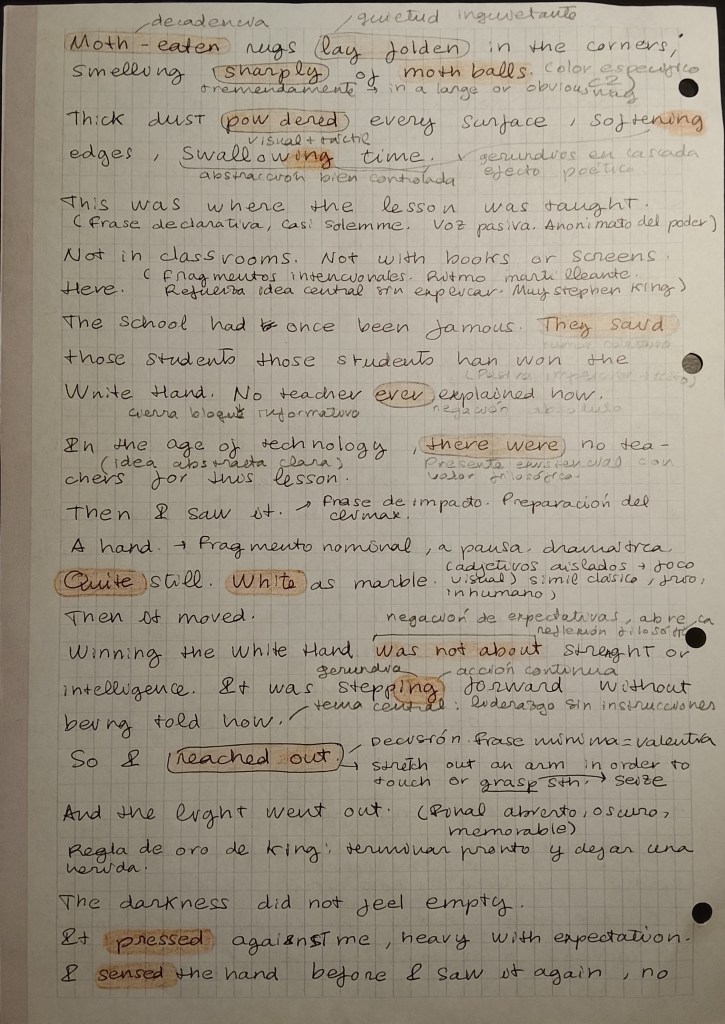 decadencia quietud inquietante
Moth-eaten rugs lay folden in the corners,
smelling sharply of moth balls. Color específico
tremendamente → in a large or obvious way c2)
Thick dust powdered every surface, softening
visual + táctil
edges, swallowing time. gerundios en cascada
abstracción bien controlada efecto poético
This was where the lesson was taught.
(Frase declarativa, casi solemne. Voz pasiva. Anonimato del poder)
Not in classrooms. Not with books or screens.
(Fragmentos intencionales. Ritmo martilleante.
Here. Refuerza idea central sin explicar. Muy Stephen King)
The school had once been famous. They said
those students those students han won the
White Hand. No teacher ever explained how.
cierra bloque informativo negación absoluta
In the age of technology, there were no tea-
(idea abstracta clara) Presente existencial con
chers for this lesson. valor filosófico.
Then I saw it. → Frase de impacto. Preparación del
clímax.
A hand. → Fragmento nominal, a pausa dramática
(adjetivos aislados → foco
Quite still. White as marble. visual) símil clásico, frío,
inhumano)
Then it moved. negación de expectativas, abre la
reflexión filosófica
Winning the White Hand was not about strenght or
gerundio acción continua
intelligence. It was stepping forward without
being told how. tema central: liderazgo sin instrucciones
So I reached out. Decisión. Frase mínima = valentía
→ stretch out an arm in order to
touch or grasp sth. → seize
And the light went out. (Final abierto, oscuro,
memorable)
Regla de oro de King: terminar pronto y dejar una
herida.
The darkness did not feel empty.
It pressed against me, heavy with expectation.
I sensed the hand before I saw it again, no